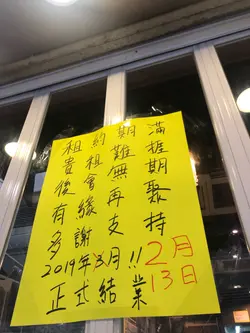 租約期滿
貴租難捱
後會無期
有緣再聚
多謝支持
2019年3月!! 2月
正式結業 13日